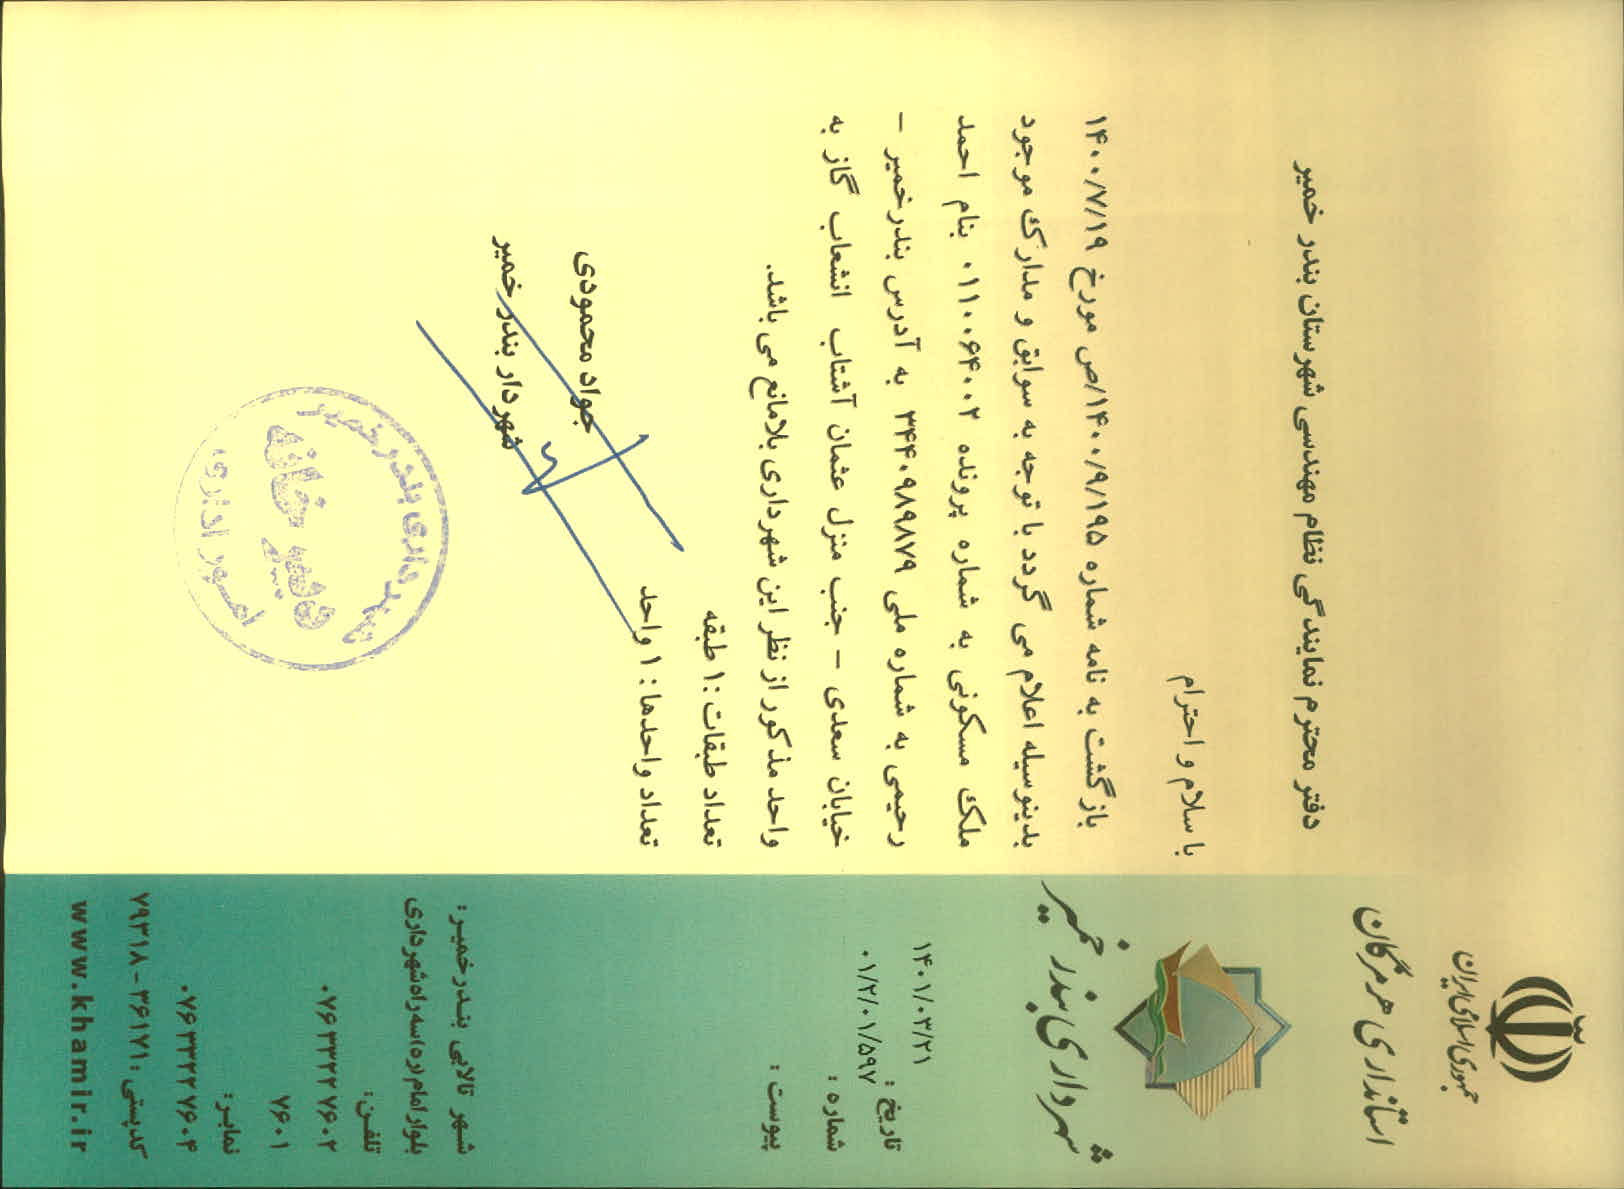 جمهوری اسلامی ایران
استانداری هرمزگان
شهرداری بندر خمیر
۱۴۰۱/۰۳/۲۱
تاریخ :
۰۱/۲/۰۱/۵۹۷
شماره :
پیوست :
دفتر محترم نمایندگی نظام مهندسی شهرستان بندر خمیر
با سلام و احترام
بازگشت به نامه شماره ۱۴۰۰/۹/۱۹۵/ص مورخ ۱۴۰۰/۷/۱۹
بدینوسیله اعلام می گردد با توجه به سوابق و مدارک موجود
ملک مسکونی به شماره پرونده ۰۱۱۰۰۶۴۰۰۲ بنام احمد
رحیمی به شماره ملی ۳۴۴۰۹۸۹۸۷۹ به آدرس بندرخمیر –
خیابان سعدی – جنب منزل عثمان آشتاب انشعاب گاز به
واحد مذکور از نظر این شهرداری بلامانع می باشد.
تعداد طبقات :۱ طبقه
تعداد واحدها : ۱ واحد
جواد محمودی
شهردار بندر خمیر
شهرداری بندر خمیر
دبیر خانه
امور اداری
شهر تالابی بندرخمیر:
بلوار امام(ره) سه راه شهرداری
تلفن:
۰۷۶۳۳۲۲۷۶۰۲
۷۶۰۱
نمابر:
۰۷۶۳۳۲۲۷۶۰۴
کدپستی : ۳۶۱۷۱ - ۷۹۳۱۸
www.khamir.ir